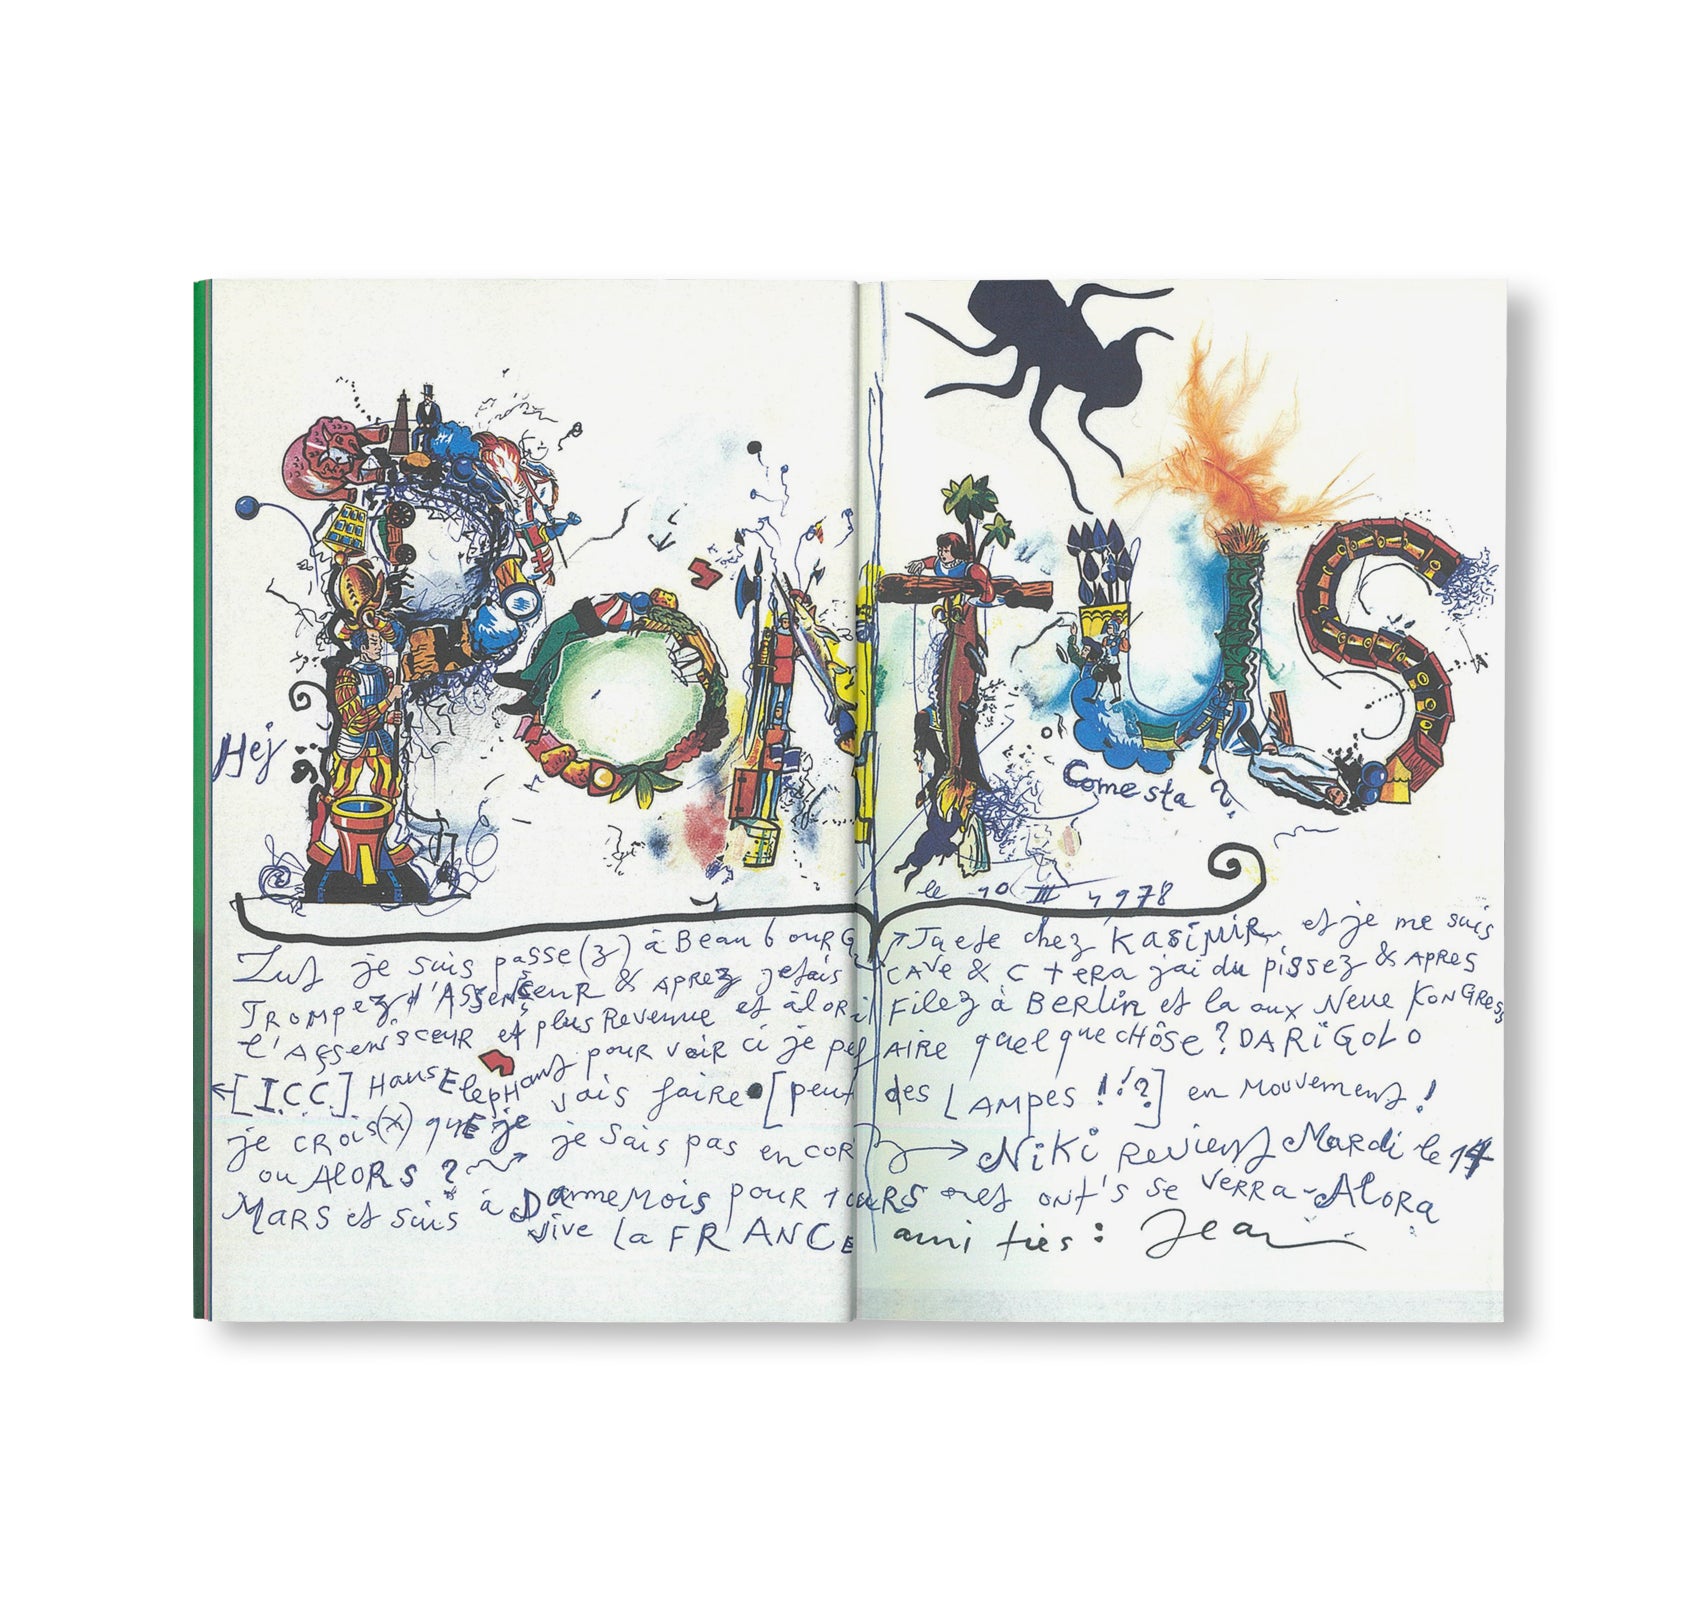 PONTUS
Hej
Come sta ?
le 10 III 1978
Zut je suis passe(z) à BeaubourG ↗Jaete chez KASiMiR et je me suis
TROMpez d'AssensceuR & APREz jetais CAVe & C tERA jai du pissez & APRES
l'AssensceuR et plus Revenue et àlors il Filez à BERLin et la aux Neue KonGRess
[I.C.C.] Hans ElepHant pour voir ci je peut AIRE quelque cHôse ? DARiGOLO
je CROis(x) quE je vais faiRe [peut des LAMpes !!?] en Mouvement !
ou AlORS ? je Sais pas encor → NiKi Revient Mardi le 14
MARS et suis à DammeMois pouR 1 ouRS et ont's se VeRRA - AloRA
vive la FRANCE ami tiés : Jean